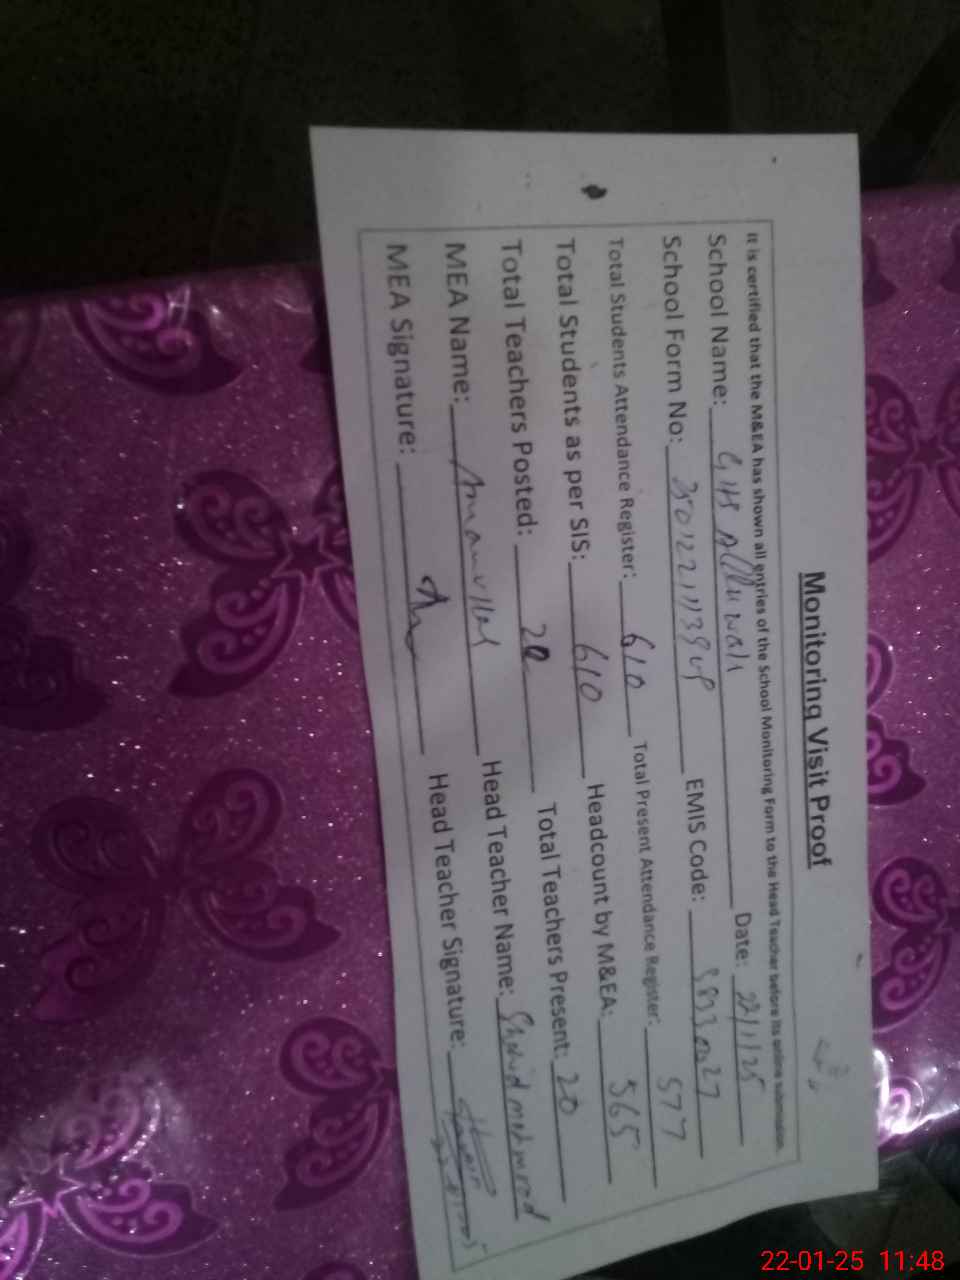 Monitoring Visit Proof
It is certified that the M&EA has shown all entries of the School Monitoring Form to the Head Teacher before its online submission.
School Name: GHS Date: 22/1/25
School Form No: EMIS Code:
Total Students Attendance Register: 610 Total Present Attendance Register: 577
Total Students as per SIS: 610 Headcount by M&EA: 565
Total Teachers Posted: 20 Total Teachers Present: 20
MEA Name: Head Teacher Name:
MEA Signature: Head Teacher Signature:
22-01-25 11:48